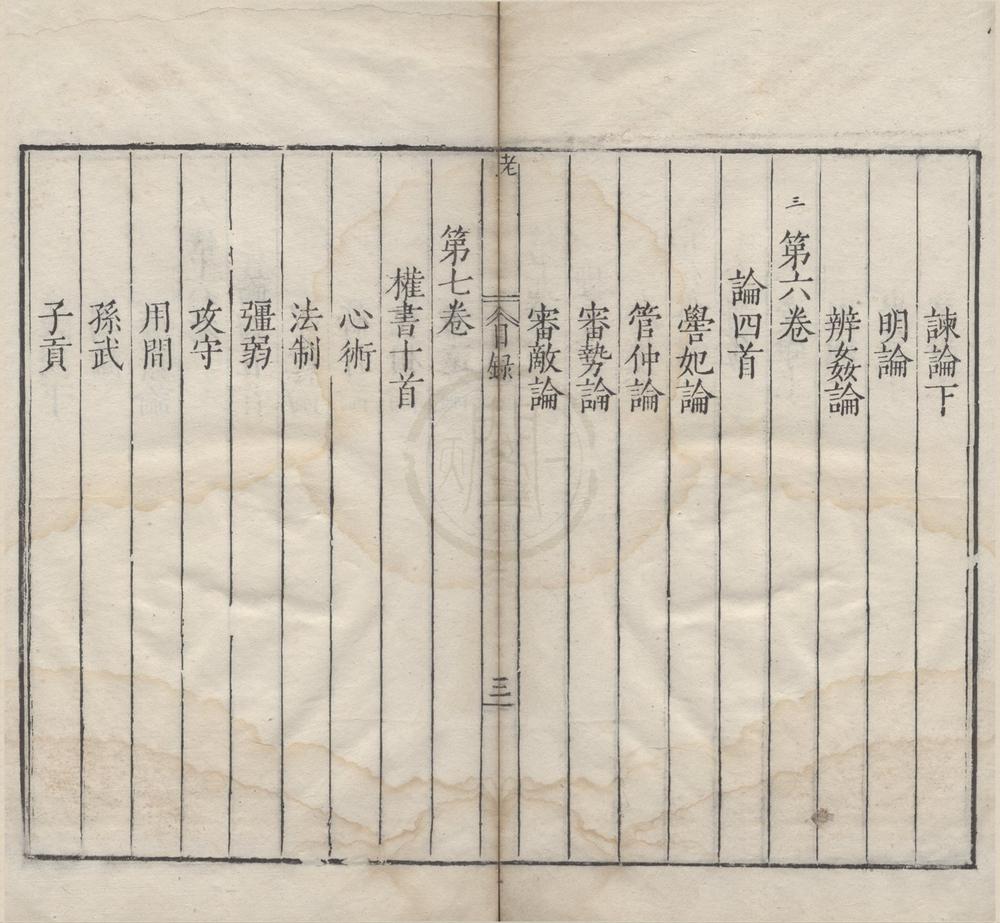 諫論下
明論
辨姦論
三 第六卷
論四首
嚳妃論
管仲論
審勢論
審敵論
老 目錄 三
第七卷
權書十首
心術
法制
彊弱
攻守
用間
孫武
子貢